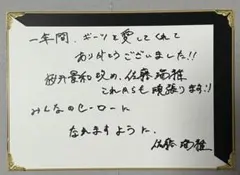 一年間、ボーンを愛してくれて
ありがとうございました!!
改め、佐藤瑠雅
これからも頑張ります:)
みんなのヒーローに
なれますように.
佐藤瑠雅